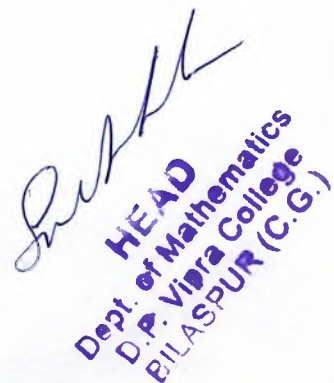 HEAD
Dept. of Mathematics
D.P. Vipra College
BILASPUR (C.G.)